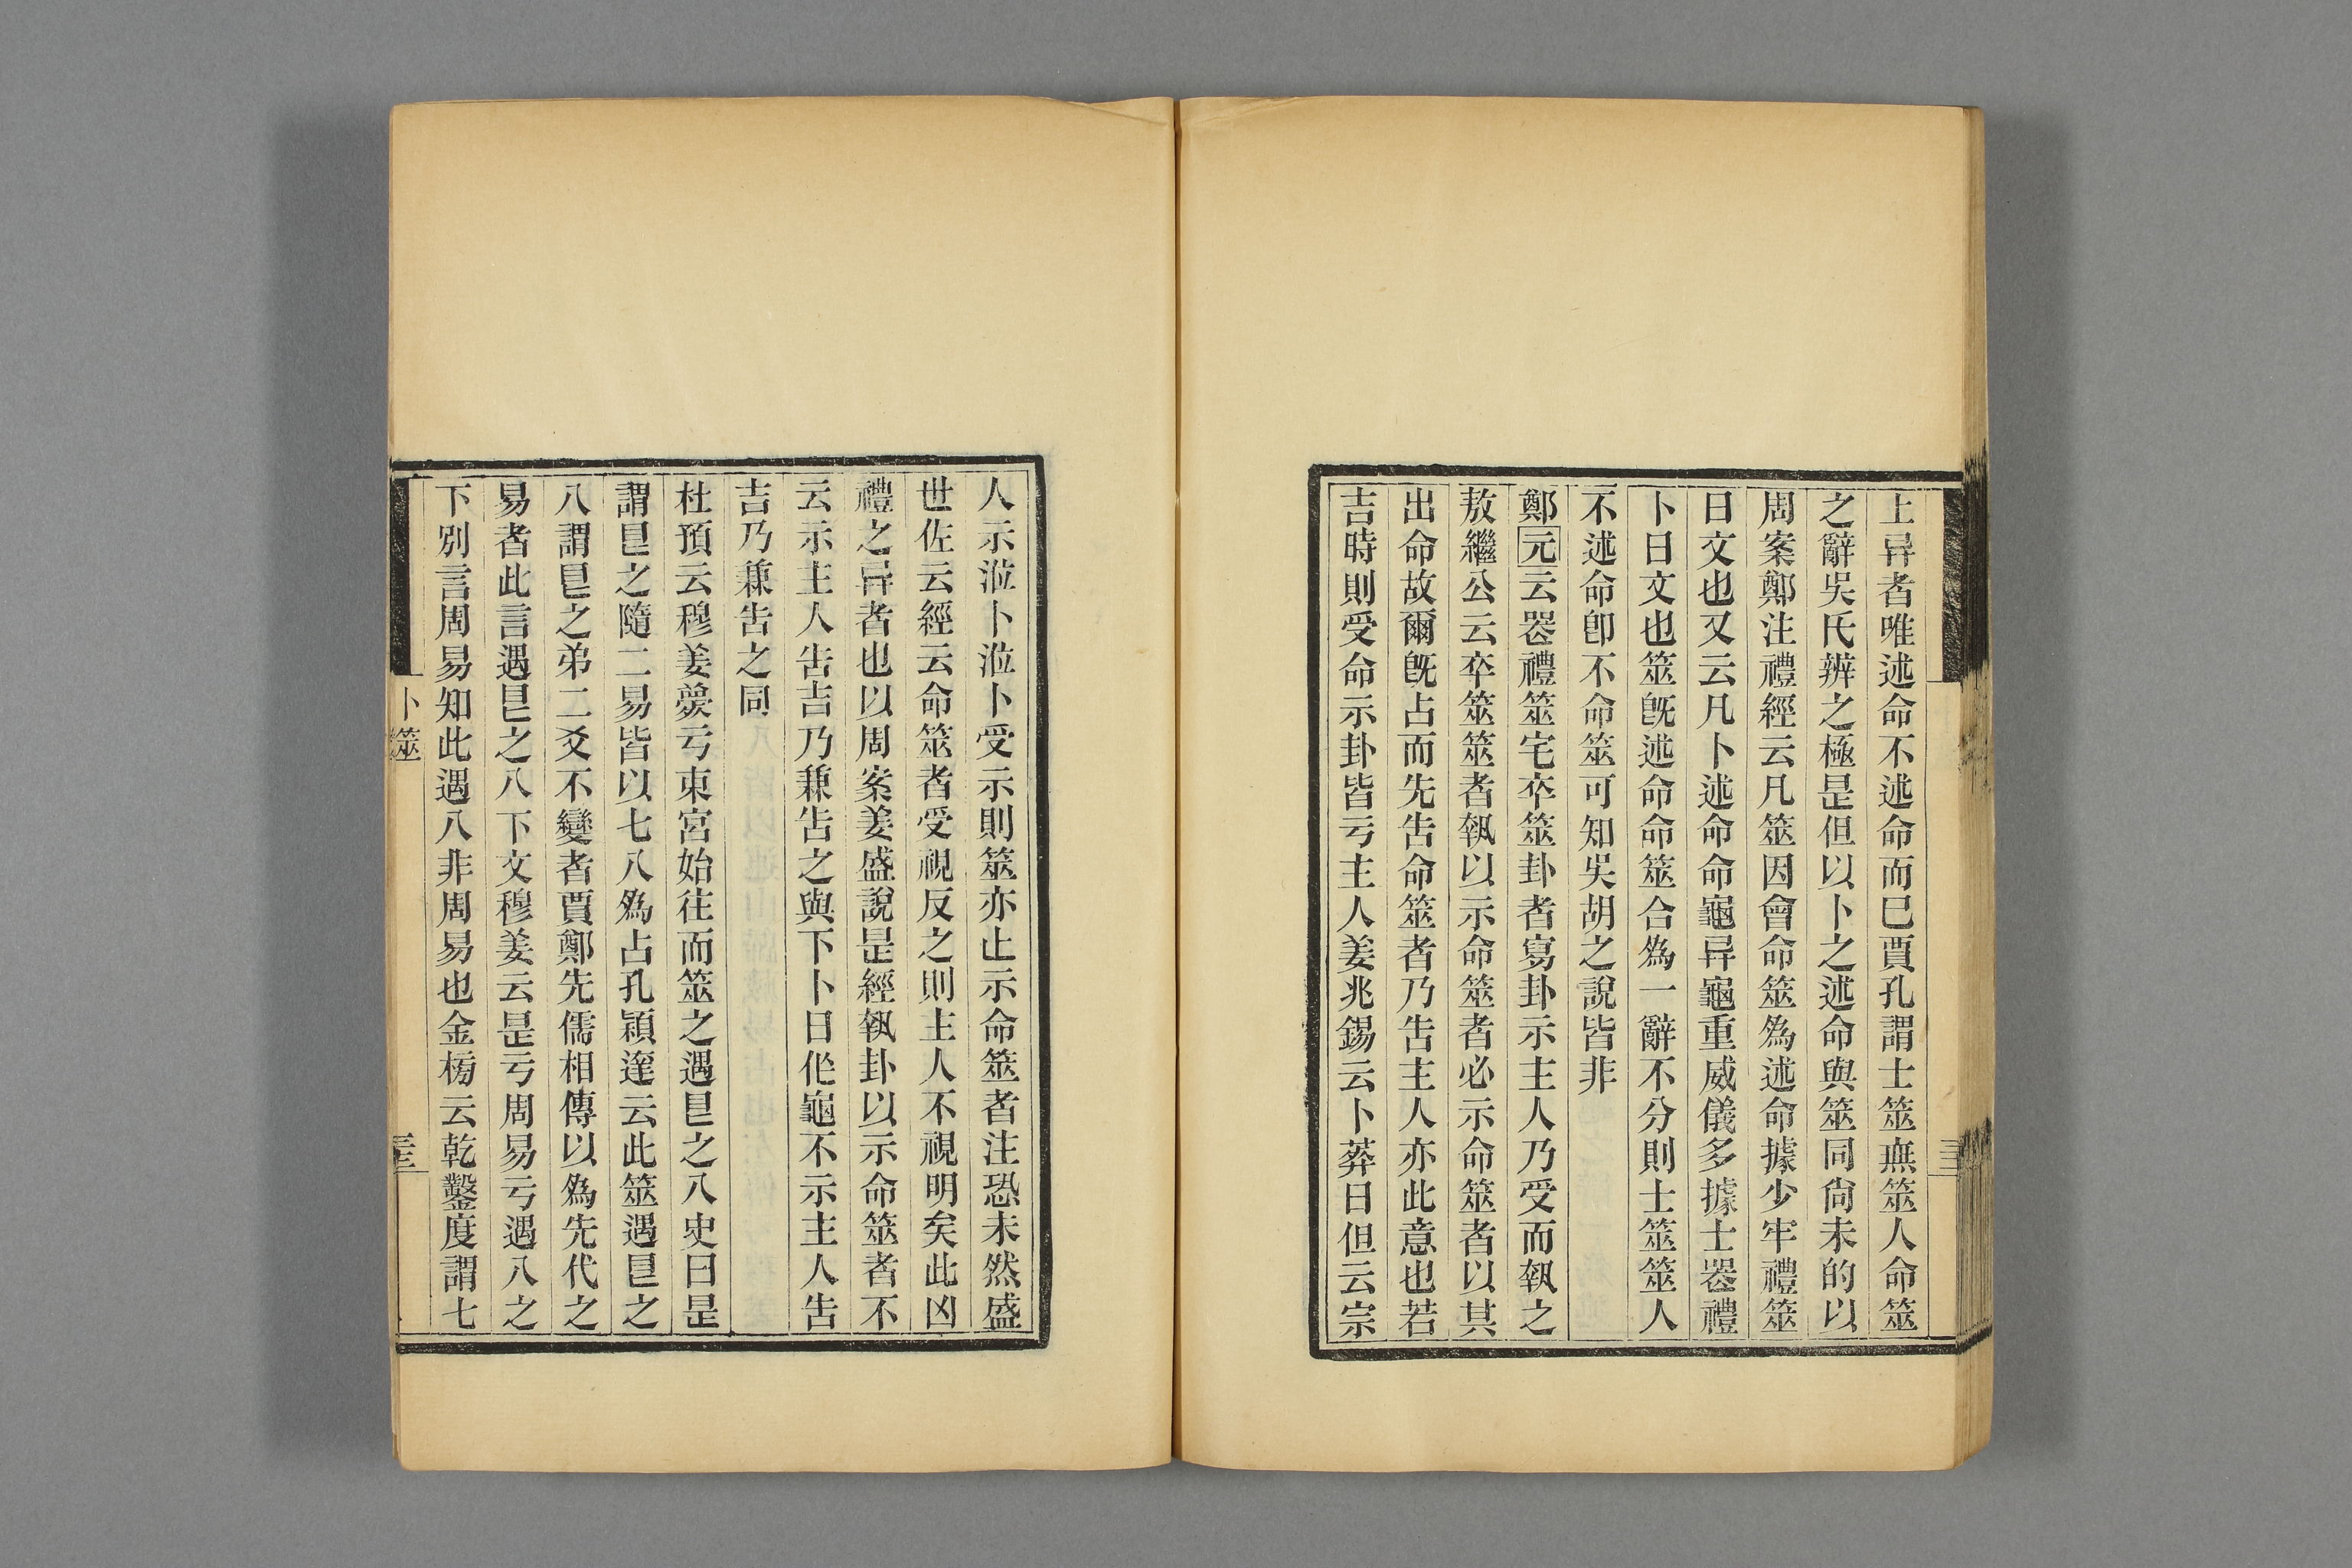 上异者唯述命不述命而已賈孔謂士筮無筮人命筮
之辭吳氏辨之極是但以卜之述命與筮同尙未的以
周案鄭注禮經云凡筮因會命筮爲述命據少牢禮筮
日文也又云凡卜述命命龜异龜重威儀多據士喪禮
卜日文也筮旣述命命筮合爲一辭不分則士筮筮人
不述命卽不命筮可知吳胡之說皆非
鄭元云喪禮筮宅卒筮卦者寫卦示主人乃受而執之
敖繼公云卒筮筮者執以示命筮者必示命筮者以其
出命故爾旣占而先告命筮者乃告主人亦此意也若
吉時則受命示卦皆亏主人姜兆錫云卜葬日但云宗
人示涖卜涖卜受示則筮亦止示命筮者注恐未然盛
世佐云經云命筮者受視反之則主人不視明矣此凶
禮之异者也以周案姜盛說是經執卦以示命筮者不
云示主人告吉乃兼告之與下卜日作龜不示主人告
吉乃兼告之同
杜預云穆姜薨亏東宮始往而筮之遇艮之八史曰是
謂艮之隨二易皆以七八爲占孔穎達云此筮遇艮之
八謂艮之弟二爻不變者賈鄭先儒相傳以爲先代之
易者此言遇艮之八下文穆姜云是亏周易亏遇八之
下別言周易知此遇八非周易也金榜云乾鑿度謂七
卜筮